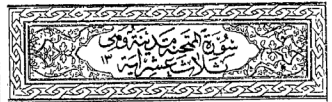 سورة الممتحنة مدنية وهي
ثلاث عشر اية ١٣